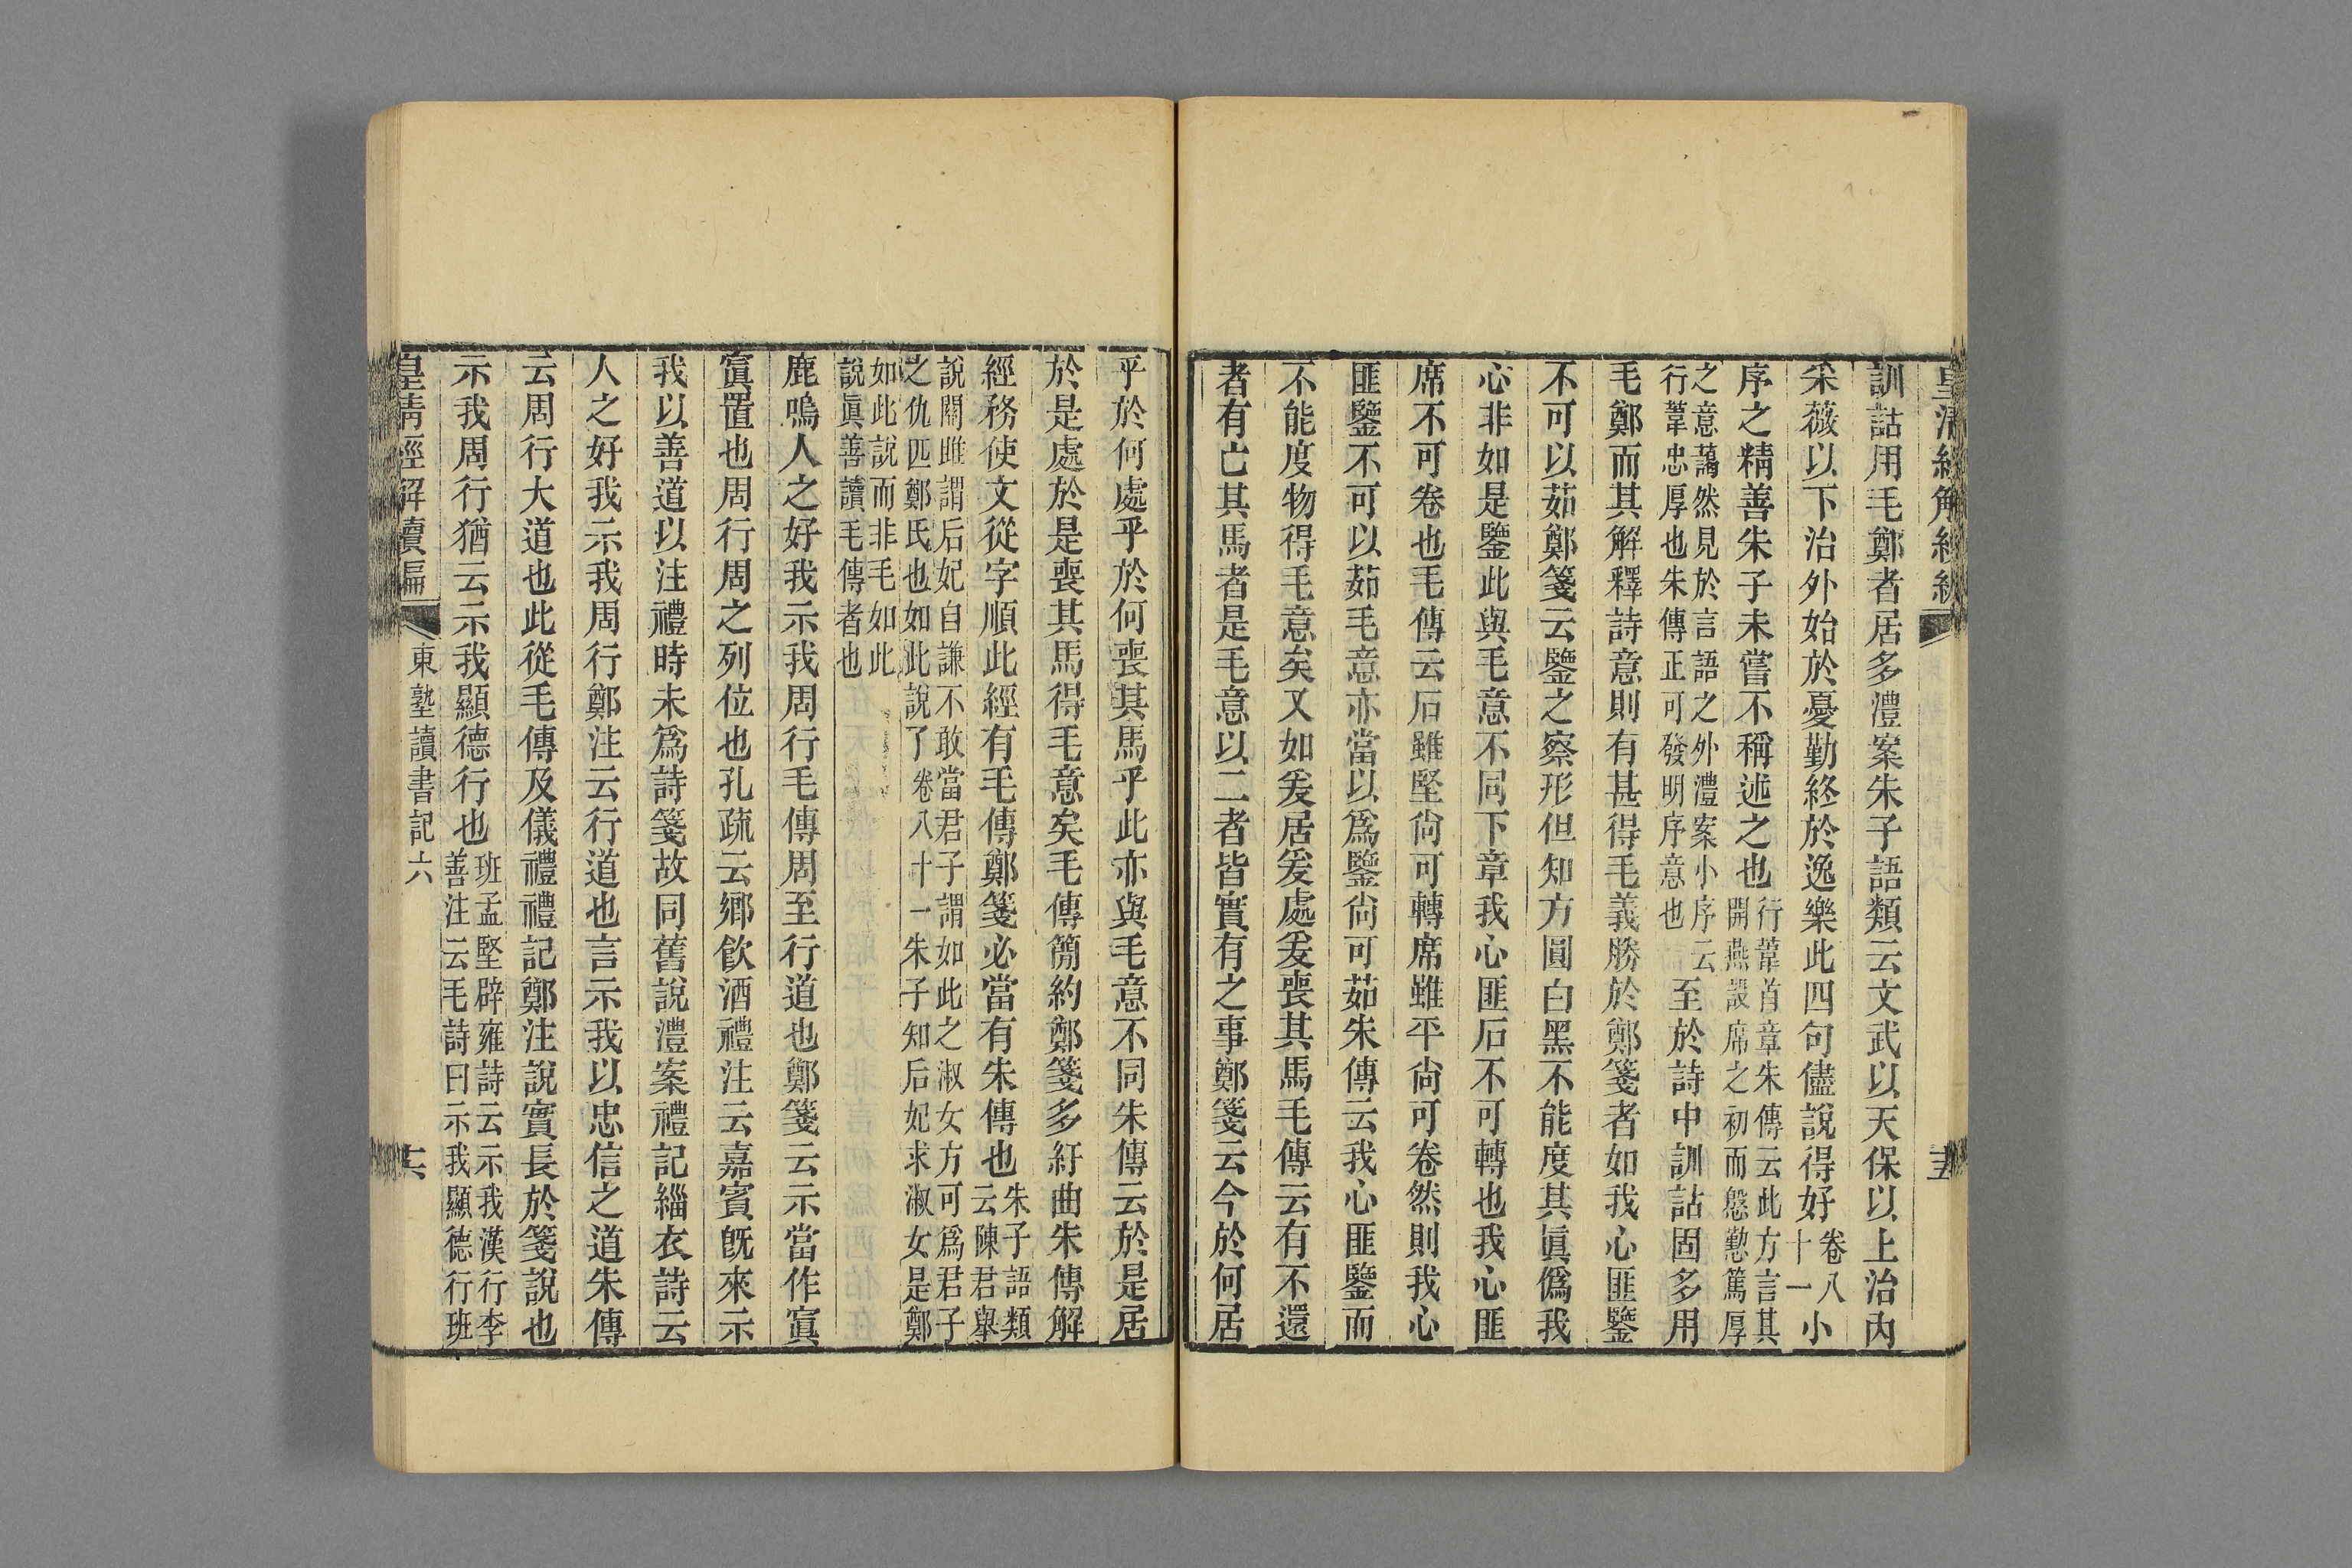 訓詁用毛鄭者居多澧案朱子語類云文武以天保以上治內
采薇以下治外始於憂勤終於逸樂此四句儘說得好卷八十一小
序之精善朱子未嘗不稱述之也行葦首章朱傳云此方言其開燕設席之初而慇懃篤厚
之意藹然見於言語之外澧案小序云行葦忠厚也朱傳正可發明序意也至於詩中訓詁固多用
毛鄭而其解釋詩意則有甚得毛義勝於鄭箋者如我心匪鑒
不可以茹鄭箋云鑒之察形但知方圓白黑不能度其眞僞我
心非如是鑒此與毛意不同下章我心匪石不可轉也我心匪
席不可卷也毛傳云石雖堅尙可轉席雖平尙可卷然則我心
匪鑒不可以茹毛意亦當以爲鑒尙可茹朱傳云我心匪鑒而
不能度物得毛意矣又如爰居爰處爰喪其馬毛傳云有不還
者有亡其馬者是毛意以二者皆實有之事鄭箋云今於何居
乎於何處乎於何喪其馬乎此亦與毛意不同朱傳云於是居
於是處於是喪其馬得毛意矣毛傳簡約鄭箋多紆曲朱傳解
經務使文從字順此經有毛傳鄭箋必當有朱傳也朱子語類云陳君舉
說關雎謂后妃自謙不敢當君子謂如此之淑女方可爲君子之仇匹鄭氏也如此說了卷八十一朱子知后妃求淑女是鄭
如此說而非毛如此說眞善讀毛傳者也
鹿鳴人之好我示我周行毛傳周至行道也鄭箋云示當作寘
寘置也周行周之列位也孔疏云鄉飮酒禮注云嘉賓旣來示
我以善道以注禮時未爲詩箋故同舊說澧案禮記緇衣詩云
人之好我示我周行鄭注云行道也言示我以忠信之道朱傳
云周行大道也此從毛傳及儀禮禮記鄭注說實長於箋說也
示我周行猶云示我顯德行也班孟堅辟雍詩云示我漢行李善注云毛詩曰示我顯德行班
皇淸經解續編
東塾讀書記六
十六